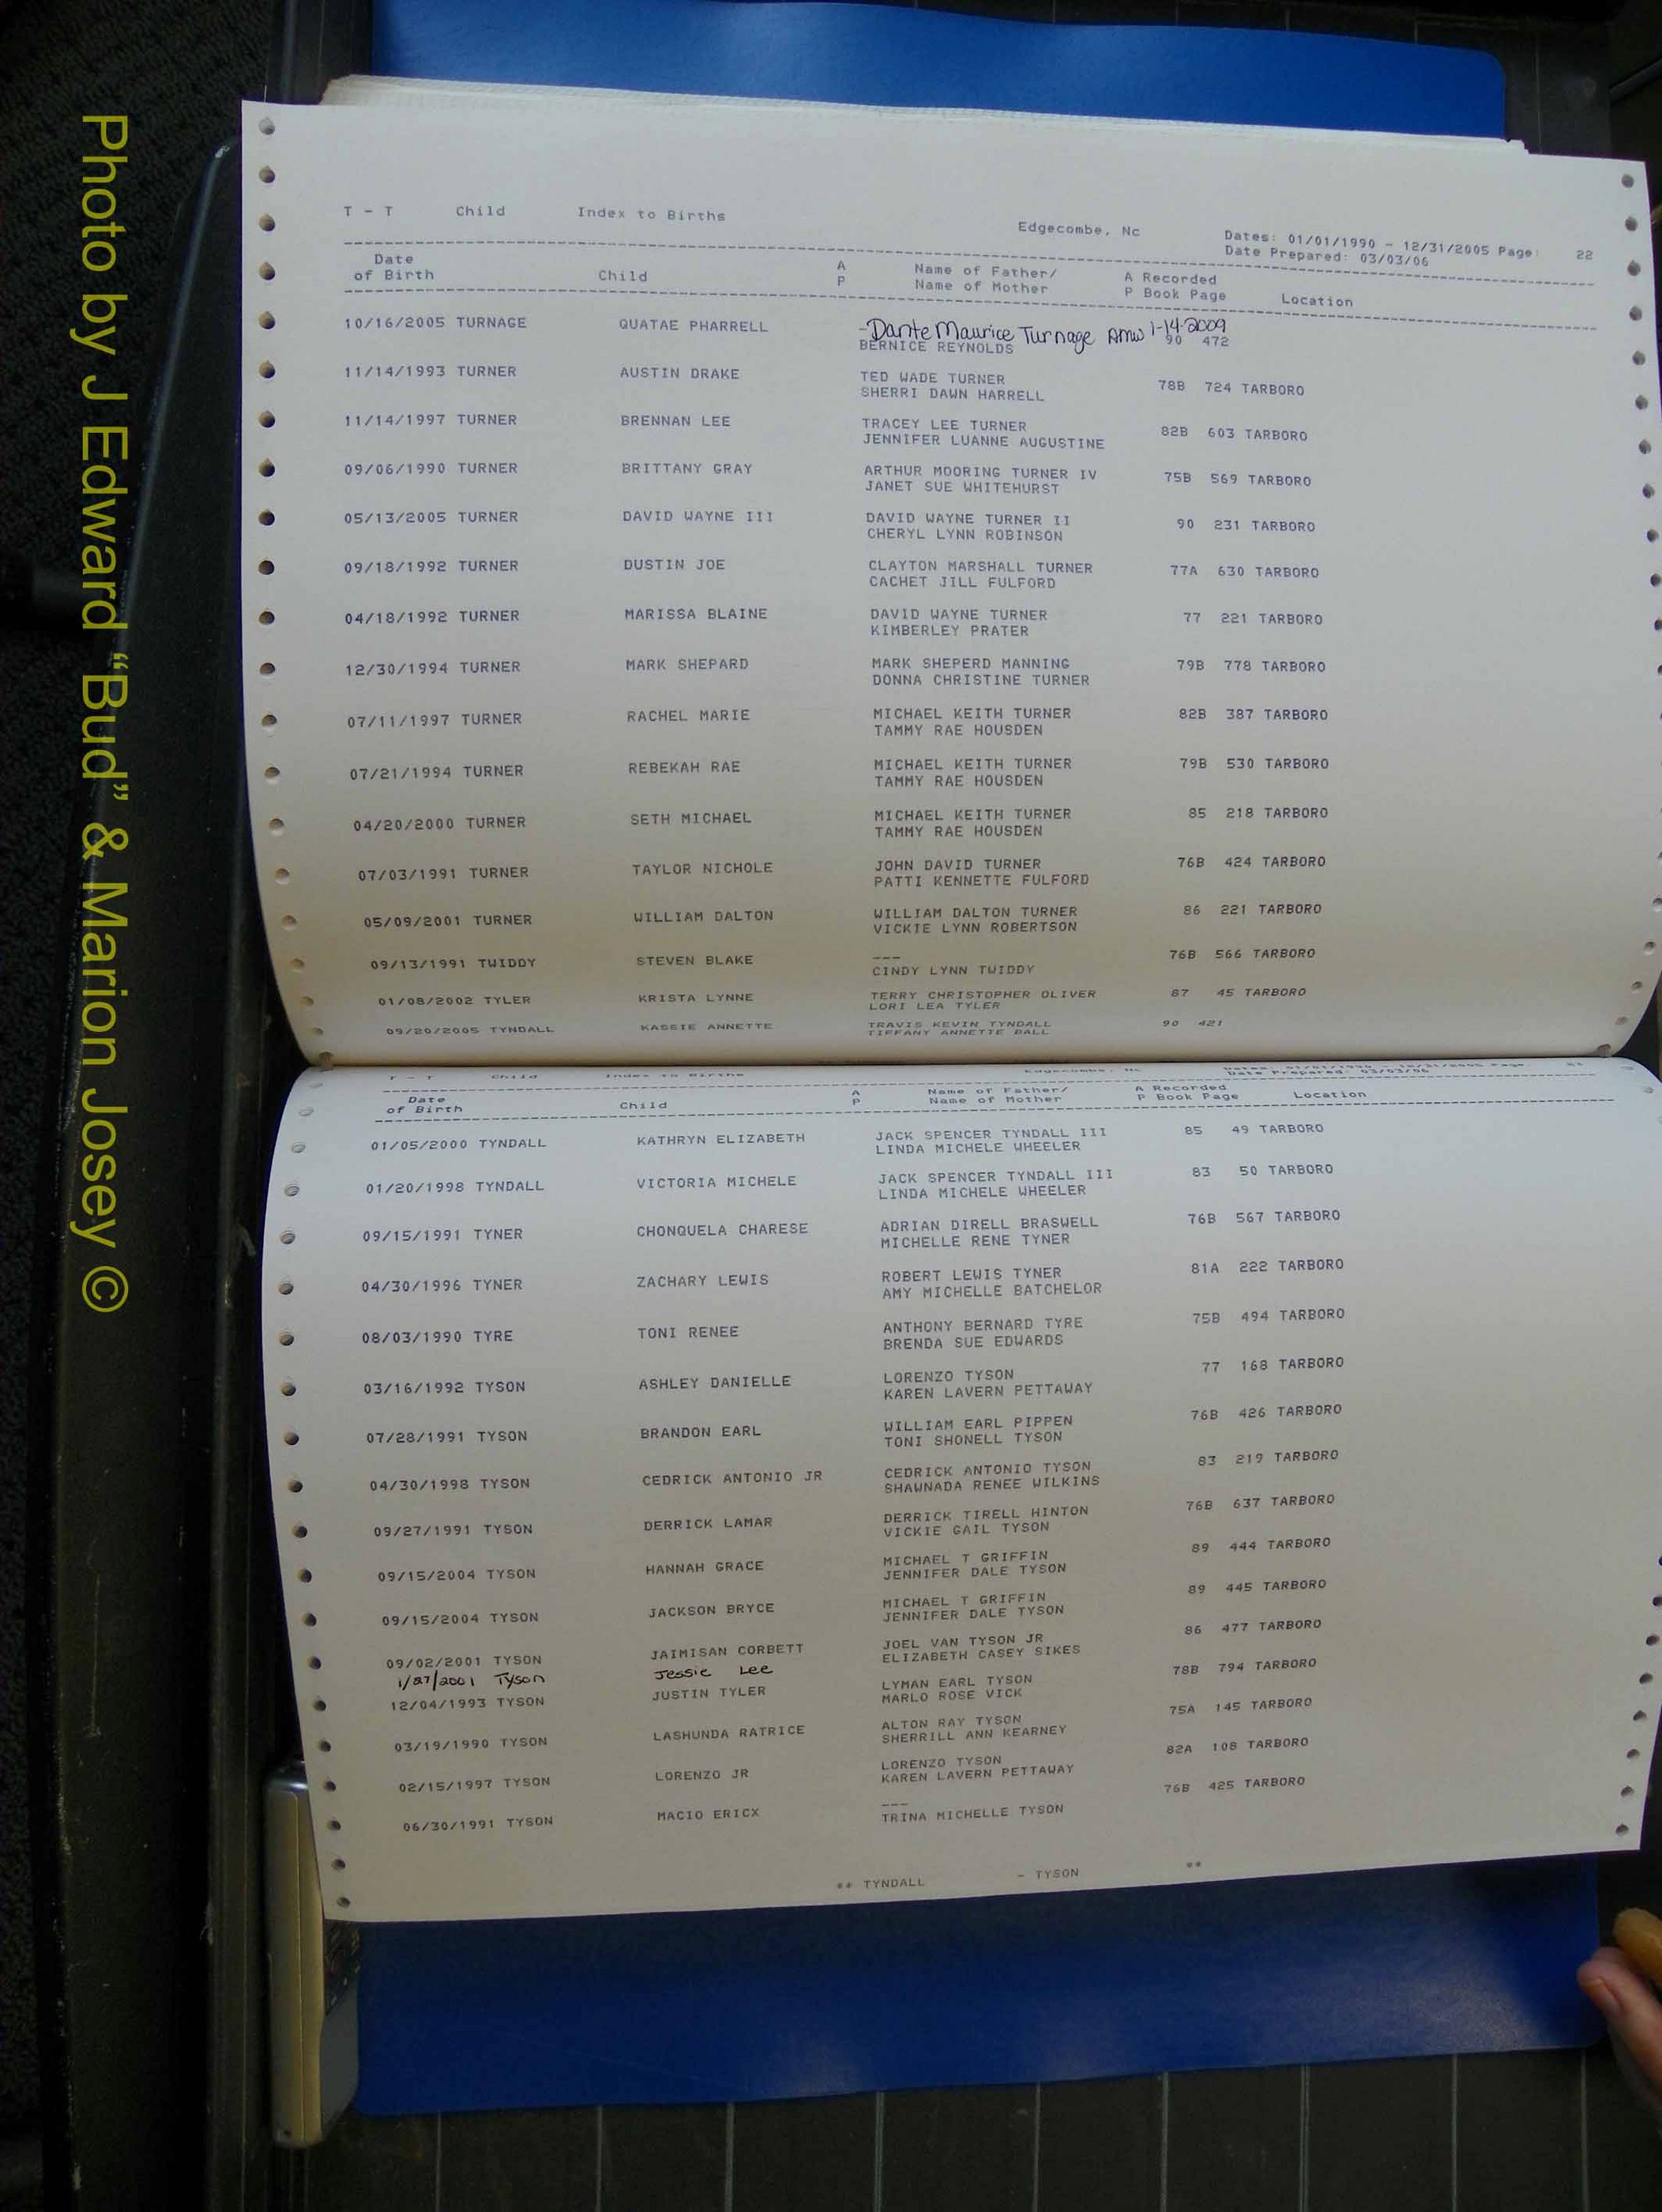 Photo by J Edward “Bud” & Marion Josey ©
T - T Child Index to Births Edgecombe, Nc Dates: 01/01/1990 - 12/31/2005 Page: 22
Date Prepared: 03/03/06
Date of Birth Child A P Name of Father/ Name of Mother A P Recorded Book Page Location
10/16/2005 TURNAGE QUATAE PHARRELL -Dante Maurice Turnage Amw 1-14-2009
BERNICE REYNOLDS 90 472
11/14/1993 TURNER AUSTIN DRAKE TED WADE TURNER 78B 724 TARBORO
SHERRI DAWN HARRELL
11/14/1997 TURNER BRENNAN LEE TRACEY LEE TURNER 82B 603 TARBORO
JENNIFER LUANNE AUGUSTINE
09/06/1990 TURNER BRITTANY GRAY ARTHUR MOORING TURNER IV 75B 569 TARBORO
JANET SUE WHITEHURST
05/13/2005 TURNER DAVID WAYNE III DAVID WAYNE TURNER II 90 231 TARBORO
CHERYL LYNN ROBINSON
09/18/1992 TURNER DUSTIN JOE CLAYTON MARSHALL TURNER 77A 630 TARBORO
CACHET JILL FULFORD
04/18/1992 TURNER MARISSA BLAINE DAVID WAYNE TURNER 77 221 TARBORO
KIMBERLEY PRATER
12/30/1994 TURNER MARK SHEPARD MARK SHEPERD MANNING 79B 778 TARBORO
DONNA CHRISTINE TURNER
07/11/1997 TURNER RACHEL MARIE MICHAEL KEITH TURNER 82B 387 TARBORO
TAMMY RAE HOUSDEN
07/21/1994 TURNER REBEKAH RAE MICHAEL KEITH TURNER 79B 530 TARBORO
TAMMY RAE HOUSDEN
04/20/2000 TURNER SETH MICHAEL MICHAEL KEITH TURNER 85 218 TARBORO
TAMMY RAE HOUSDEN
07/03/1991 TURNER TAYLOR NICHOLE JOHN DAVID TURNER 76B 424 TARBORO
PATTI KENNETTE FULFORD
05/09/2001 TURNER WILLIAM DALTON WILLIAM DALTON TURNER 86 221 TARBORO
VICKIE LYNN ROBERTSON
09/13/1991 TWIDDY STEVEN BLAKE --- 76B 566 TARBORO
CINDY LYNN TWIDDY
01/08/2002 TYLER KRISTA LYNNE TERRY CHRISTOPHER OLIVER 87 45 TARBORO
LORI LEA TYLER
09/20/2005 TYNDALL KASSIE ANNETTE TRAVIS KEVIN TYNDALL 90 421
TIFFANY ANNETTE BALL
T - T Child Index to Births Edgecombe, Nc
Date Prepared: 03/03/06
Date of Birth Child A P Name of Father/ Name of Mother A P Recorded Book Page Location
01/05/2000 TYNDALL KATHRYN ELIZABETH JACK SPENCER TYNDALL III 85 49 TARBORO
LINDA MICHELE WHEELER
01/20/1998 TYNDALL VICTORIA MICHELE JACK SPENCER TYNDALL III 83 50 TARBORO
LINDA MICHELE WHEELER
09/15/1991 TYNER CHONQUELA CHARESE ADRIAN DIRELL BRASWELL 76B 567 TARBORO
MICHELLE RENE TYNER
04/30/1996 TYNER ZACHARY LEWIS ROBERT LEWIS TYNER 81A 222 TARBORO
AMY MICHELLE BATCHELOR
08/03/1990 TYRE TONI RENEE ANTHONY BERNARD TYRE 75B 494 TARBORO
BRENDA SUE EDWARDS
03/16/1992 TYSON ASHLEY DANIELLE LORENZO TYSON 77 168 TARBORO
KAREN LAVERN PETTAWAY
07/28/1991 TYSON BRANDON EARL WILLIAM EARL PIPPEN 76B 426 TARBORO
TONI SHONELL TYSON
04/30/1998 TYSON CEDRICK ANTONIO JR CEDRICK ANTONIO TYSON 83 219 TARBORO
SHAWNADA RENEE WILKINS
09/27/1991 TYSON DERRICK LAMAR DERRICK TIRELL HINTON 76B 637 TARBORO
VICKIE GAIL TYSON
09/15/2004 TYSON HANNAH GRACE MICHAEL T GRIFFIN 89 444 TARBORO
JENNIFER DALE TYSON
09/15/2004 TYSON JACKSON BRYCE MICHAEL T GRIFFIN 89 445 TARBORO
JENNIFER DALE TYSON
09/02/2001 TYSON JAIMISAN CORBETT JOEL VAN TYSON JR 86 477 TARBORO
ELIZABETH CASEY SIKES
1/27/2001 Tyson Jessie Lee
12/04/1993 TYSON JUSTIN TYLER LYMAN EARL TYSON 78B 794 TARBORO
MARLO ROSE VICK
03/19/1990 TYSON LASHUNDA RATRICE ALTON RAY TYSON 75A 145 TARBORO
SHERRILL ANN KEARNEY
02/15/1997 TYSON LORENZO JR LORENZO TYSON 82A 108 TARBORO
KAREN LAVERN PETTAWAY
06/30/1991 TYSON MACIO ERICX --- 76B 425 TARBORO
TRINA MICHELLE TYSON
** TYNDALL - TYSON **